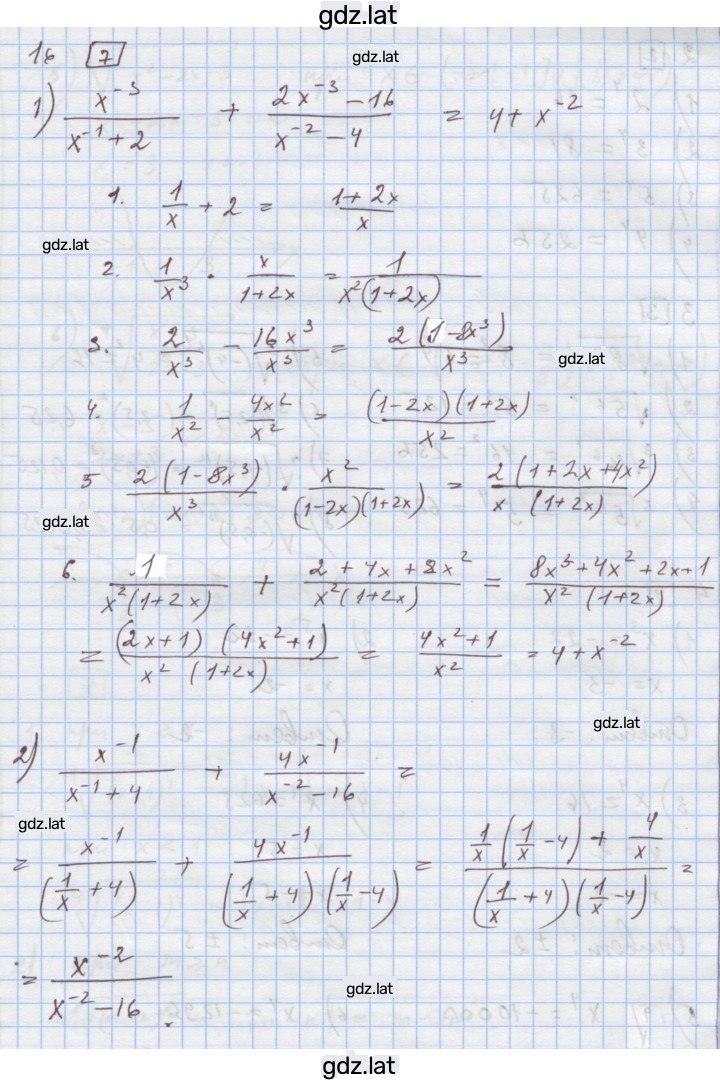 gdz.lat
16 7 gdz.lat
1) x⁻³/(x⁻¹+2) + (2x⁻³-16)/(x⁻²-4) = 4+x⁻²
1. 1/x + 2 = (1+2x)/x
gdz.lat
2. 1/x³ · x/(1+2x) = 1/(x²(1+2x))
3. 2/x³ - 16x³/x³ = 2(1-8x³)/x³
gdz.lat
4. 1/x² - 4x²/x² = (1-2x)(1+2x)/x²
5 2(1-8x³)/x³ · x²/((1-2x)(1+2x)) = 2(1+2x+4x²)/(x(1+2x))
gdz.lat
6. 1/(x²(1+2x)) + (2+4x+8x²)/(x²(1+2x)) = (8x³+4x²+2x+1)/(x²(1+2x))
= (2x+1)(4x²+1)/(x²(1+2x)) = (4x²+1)/x² = 4+x⁻²
gdz.lat
2) x⁻¹/(x⁻¹+4) + 4x⁻¹/(x⁻²-16) =
gdz.lat
= x⁻¹/(1/x+4) + 4x⁻¹/((1/x+4)(1/x-4)) = (1/x(1/x-4)+4/x)/((1/x+4)(1/x-4)) =
= x⁻²/(x⁻²-16).
gdz.lat
gdz.lat